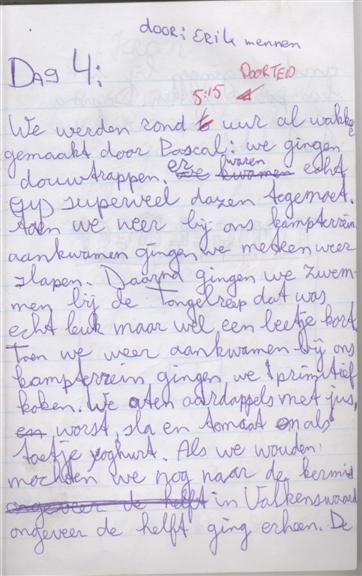 door: Erik mennen
Dag 4:
DOOR TED
5:15
We werden rond 6 uur al wakker
gemaakt door Pascal: we gingen
douwtrappen. er waren echt
superveel dazen tegemoet.
toen we weer bij ons kampterrein
aankwamen gingen we meteen weer
slapen. Daarna gingen we zwem-
men bij de Tongelreep dat was
echt leuk maar wel een beetje kort
Toen we weer aankwamen bij ons
kampterrein gingen we primitief
koken. We aten aardappels met jus,
en worst, sla en tomaat en als
toetje yoghurt. Als we wouden
mochten we nog naar de kermis
ongeveer de helft in Valkenswaard
ongeveer de helft ging erheen. De